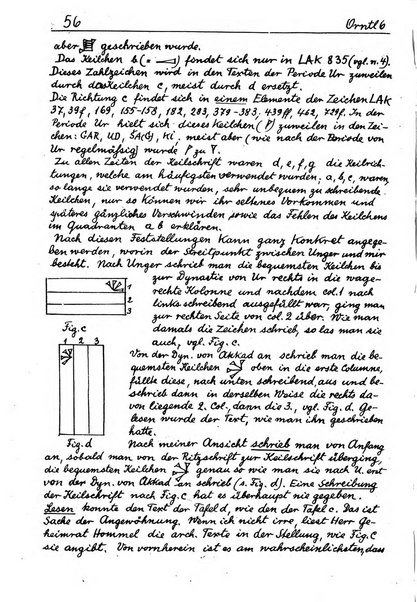 56 Orntl 6
aber geschrieben wurde.
Das Keilchen b (= ) findet sich nur in LAK 835 (vgl. n. 4).
Dieses Zahlzeichen wird in den Texten der Periode Ur zuweilen
durch das Keilchen c, meist durch d ersetzt.
Die Richtung c findet sich in einem Elemente der Zeichen LAK
37, 39f, 169, 155-158, 182, 283, 379-383. 439ff, 462, f. In der
Periode Ur hielt sich dieses Keilchen ( ) zuweilen in den Zei-
chen: GAR, UD, ŠA(G), KI, meist aber (wie nach der Periode von
Ur regelmäßig) wurde zu .
Zu allen Zeiten der Keilschrift waren d, e, f, g die Keilrich-
tungen, welche am häufigsten verwendet wurden: a, b, c, waren,
so lange sie verwendet wurden, sehr unbequem zu schreibende
Keilchen, nur so können wir ihr seltenes Vorkommen und
späteres gänzliches Verschwinden sowie das Fehlen des Keilchens
im Quadranten a b erklären.
Nach diesen Feststellungen kann ganz konkret angege-
ben werden, worin der Streitpunkt zwischen Unger und mir
besteht. Nach Unger schrieb man die bequemsten Keilchen bis
zur Dynastie von Ur rechts in die wage-
rechte Kolonne und nachdem col. 1 nach
links schreibend ausgefüllt war, ging man
zur rechten Seite von col. 2 über. Wie man
damals die Zeichen schrieb, so las man sie
auch, vgl. Fig. c.
1
2
3
Fig. c
1 2 3
Von der Dyn. von Akkad an schrieb man die be-
quemsten Keilchen oben in die erste Columne,
füllte diese, nach unten schreibend, aus und be-
schrieb dann in derselben Weise die rechts da-
von liegende 2. Col., dann die 3., vgl. Fig. d. Ge-
lesen wurde der Text, wie man ihn geschrieben
hatte.
Fig. d
Nach meiner Ansicht schrieb man von Anfang
an, sobald man von der Ritzschrift zur Keilschrift überging,
die bequemsten Keilchen genau so wie man sie nach U. erst
von der Dyn. von Akkad an schrieb (s. Fig. d). Eine Schreibung
der Keilschrift nach Fig. c hat es überhaupt nie gegeben.
Lesen konnte den Text der Tafel d, wie den der Tafel c. Das ist
Sache der Angewöhnung. Wenn ich nicht irre, liest Herr Ge-
heimrat Hommel die arch. Texte in der Stellung, wie Fig. c
sie angibt. Von vornherein ist es am wahrscheinlichsten, dass